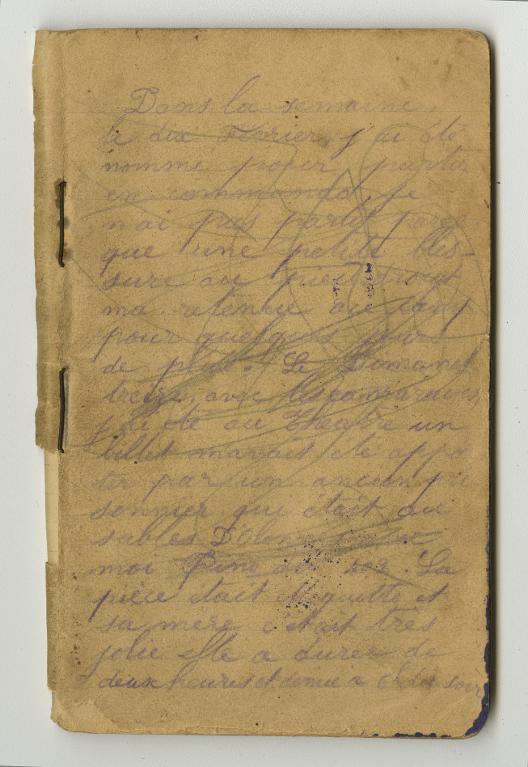 Dans la semaine
le dix Février, j'ai été
nommé pour partir
en commando, je
n'ai pas partit parce
que une petite bles-
sure au pied
ma retenue au camp
pour quelques jours
de plus. Le Domanch
treize, avec les camarades
j'ai été au Théatre un
billet mavait été appo
ter par un ancien pri
sonnier qui était au
sables D'Olonne
moi
pièce était et
sa mère c'était très
jolie elle a durer de
deux heures et demie a 6h du soir